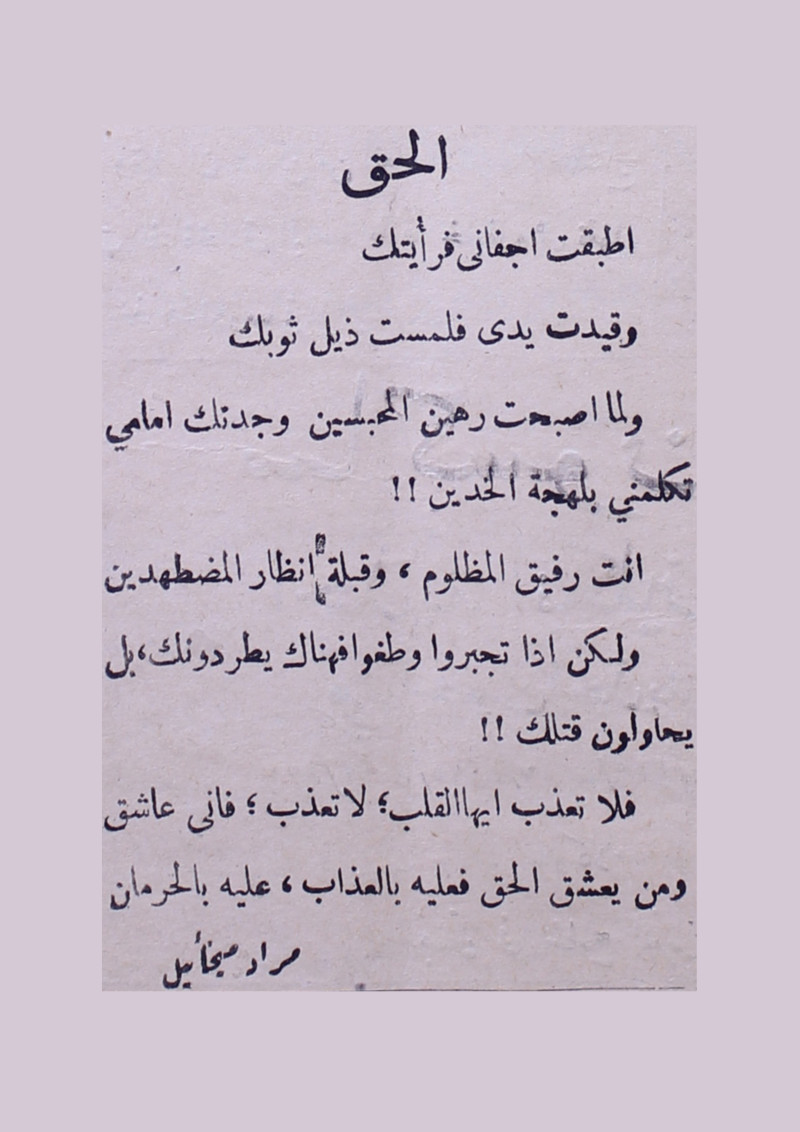 الحق
اطبقت اجفانى فرأيتك
وقيدت يدى فلمست ذيل ثوبك
ولما اصبحت رهين المحبسين وجدتك امامي
تكلمني بلهجة الخدين !!
انت رفيق المظلوم ، وقبلة انظار المضطهدين
ولكن اذا تجبروا وطغوا فهناك يطردونك، بل
يحاولون قتلك !!
فلا تعذب ايها القلب؛ لا تعذب ؛ فانى عاشق
ومن يعشق الحق فعليه بالعذاب ، عليه بالحرمان
مراد ميخائيل